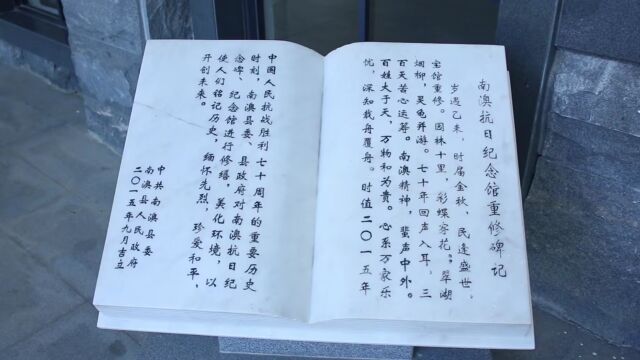 南澳抗日纪念馆重修碑记
岁逢乙未，时届金秋，民逢盛世，
宝馆重修。园林十里，彩蝶窖花。翠湖
烟柳，灵龟并游。七十年回声入耳，三
百天苦心运筹。南澳精神，蜚声中外。
百姓大于天，万物和为贵。心系万家乐
忧，深知载舟覆舟。时值二〇一五年
中国人民抗战胜利七十周年的重要历史
时刻，南澳县委、县政府对南澳抗日纪
念碑、纪念馆进行修缮，美化环境，以
使人们铭记历史，缅怀先烈，珍爱和平，
开创未来。
中共南澳县委
南澳县人民政府
二〇一五年九月吉立